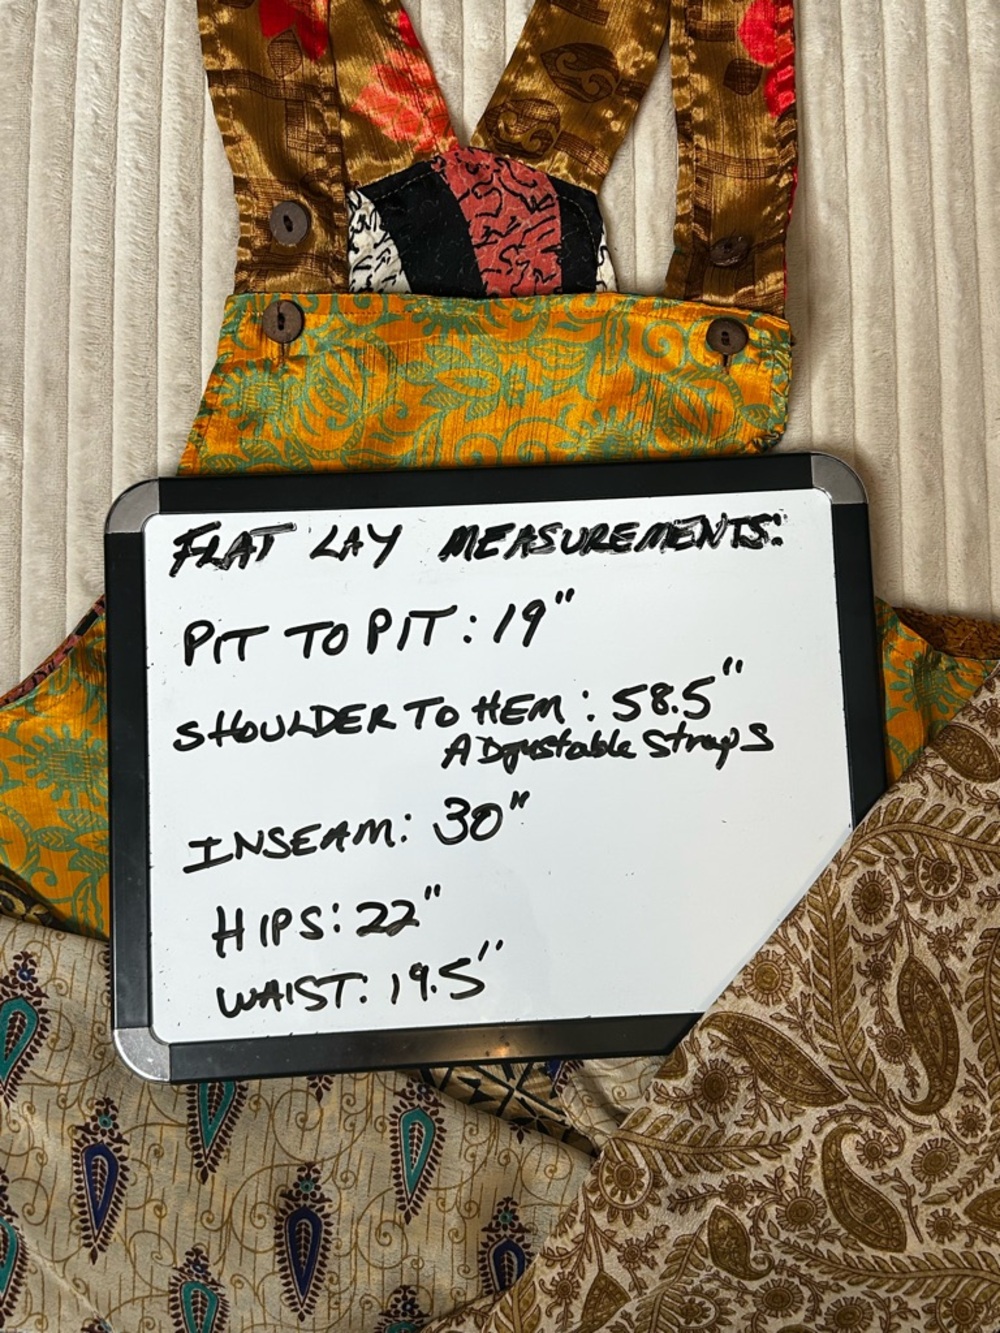 FLAT LAY MEASUREMENTS:
PIT TO PIT: 19"
SHOULDER TO HEM: 58.5"
ADjustable straps
INSEAM: 30"
HIPS: 22"
WAIST: 19.5"